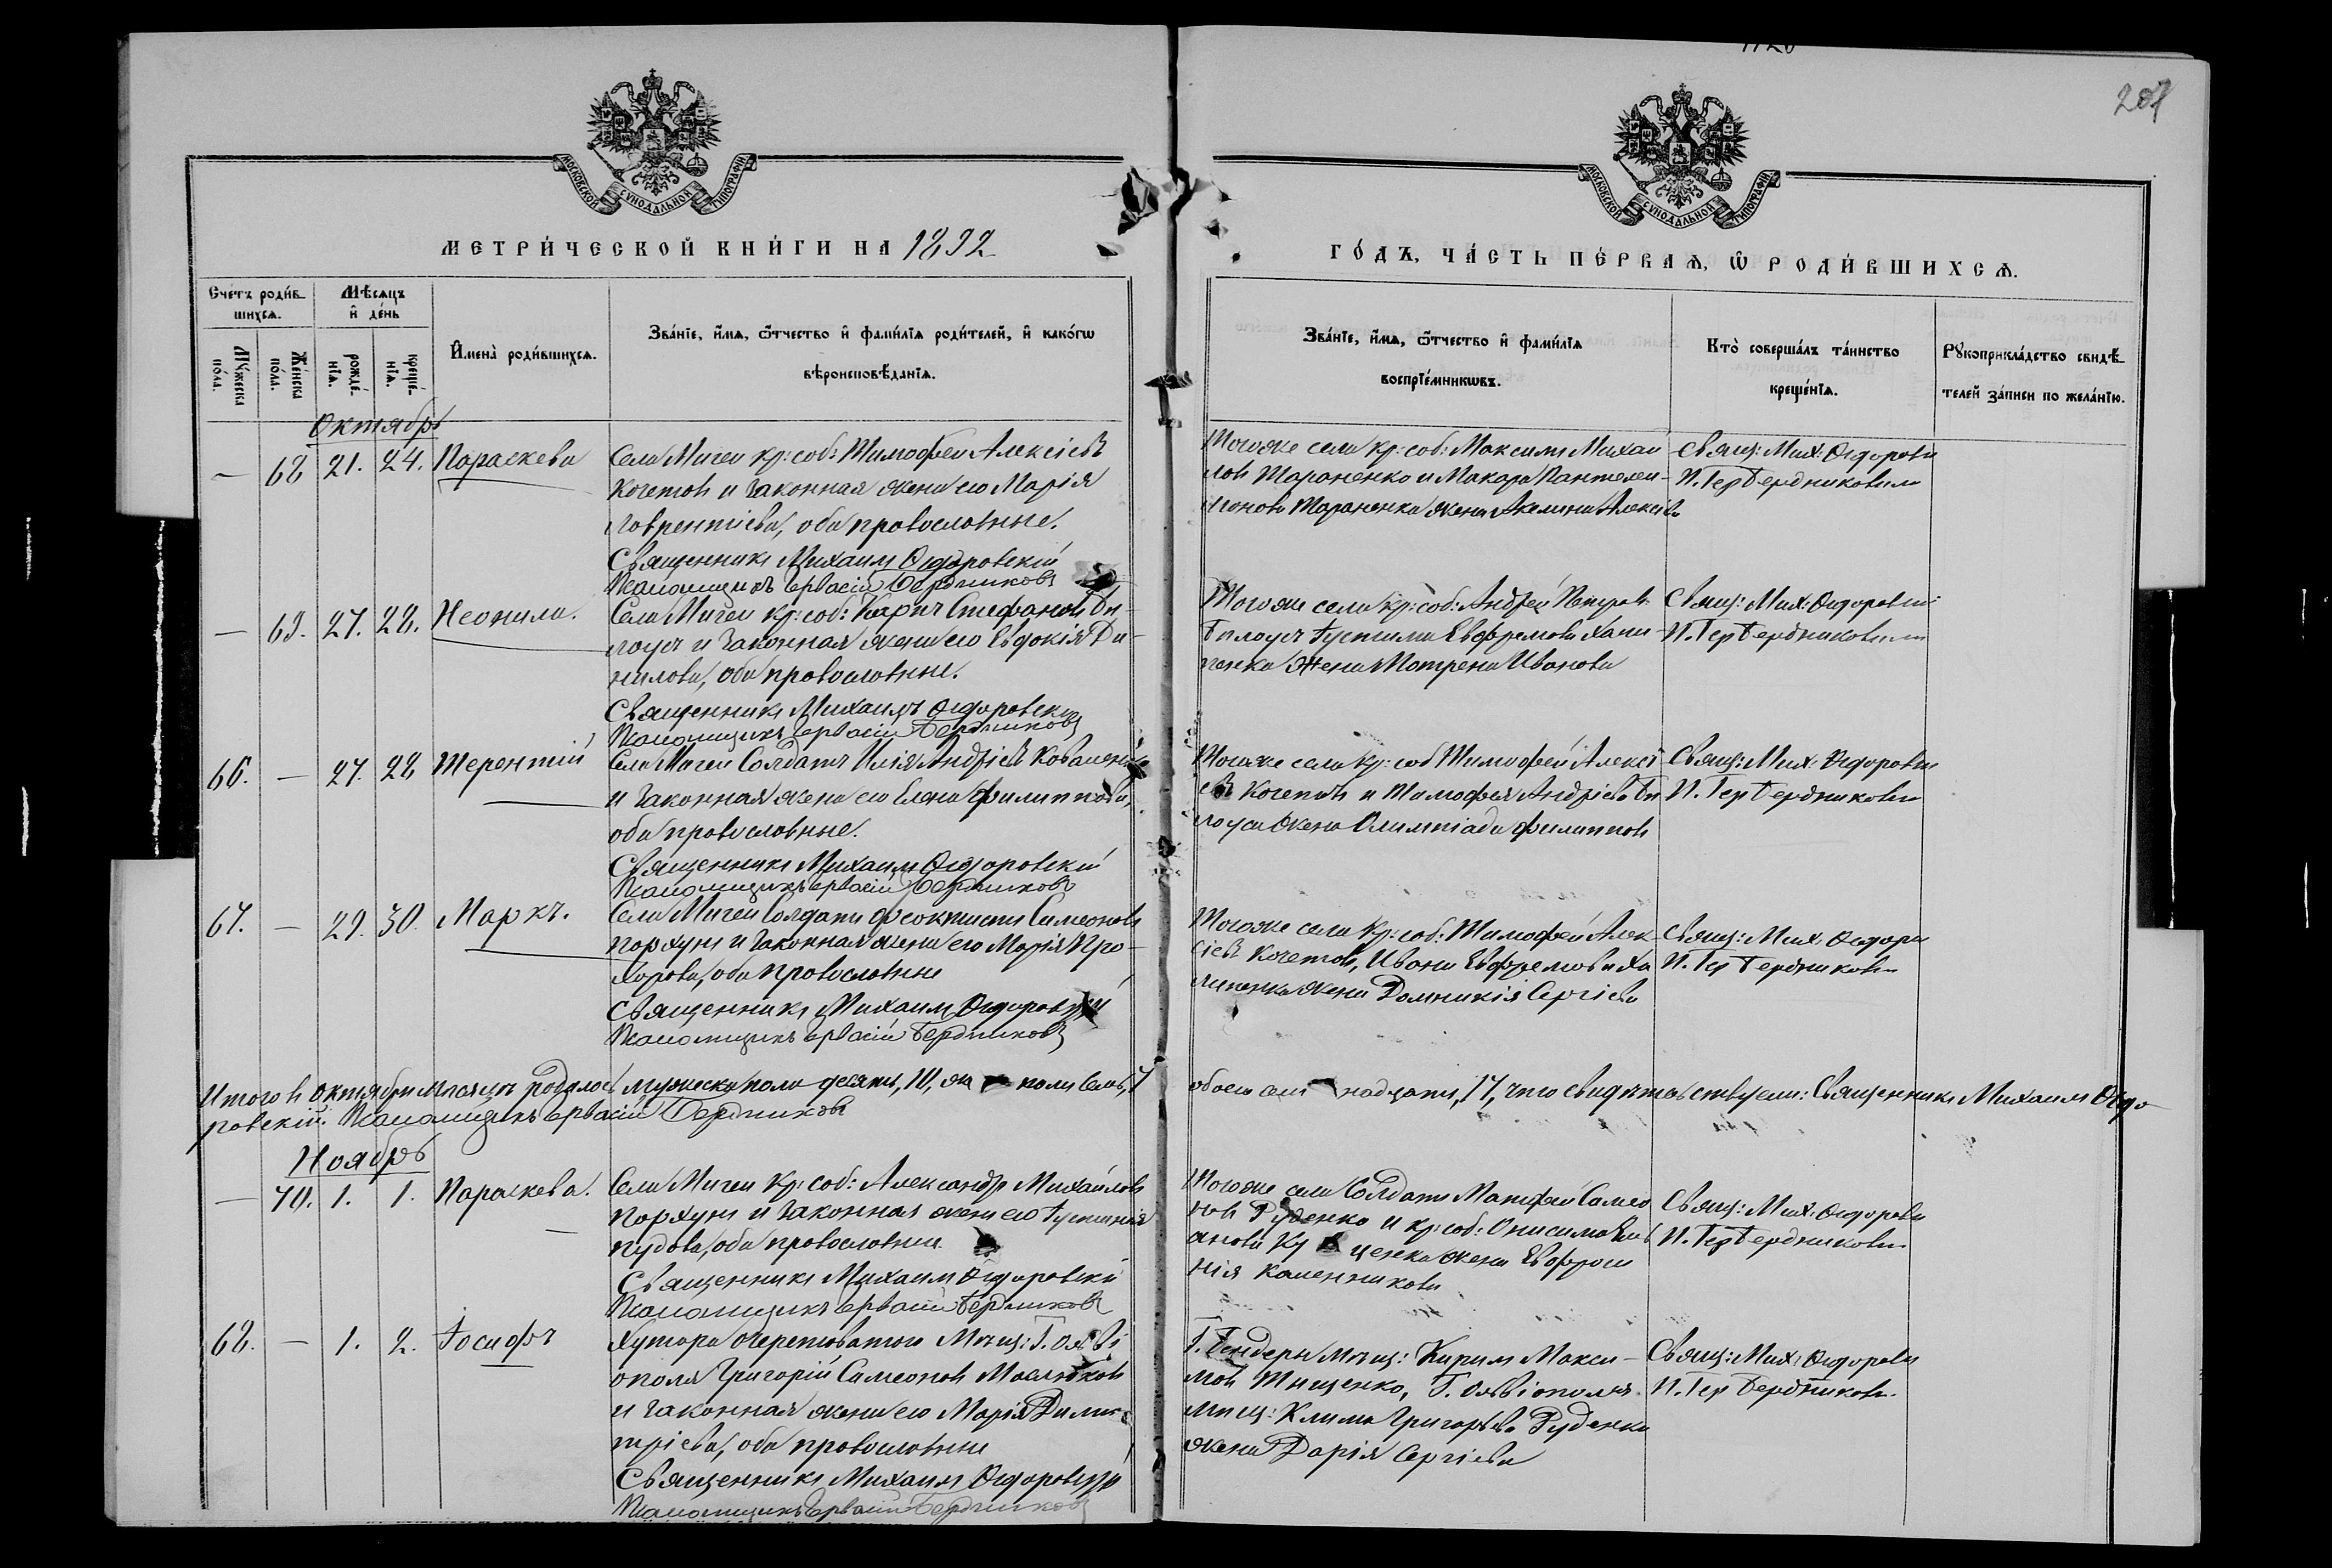 207
МОСКОВСКОЙ СѴНОДАЛЬНОЙ ТИПОГРАФІИ
МОСКОВСКОЙ СѴНОДАЛЬНОЙ ТИПОГРАФІИ
МЕТРИ́ЧЕСКОЙ КНИ́ГИ НА 1892
ГО́ДЪ, ЧА́СТЬ ПЕ́РВАѦ, Ѽ РОДИ́ВШИХСѦ.
Сче́тъ роди́в-
шихсѧ.
Мѣ́сѧцъ
и҆ де́нь
Мꙋ́жеска
по́ла.
Же́нска
по́ла.
рожде́-
нїѧ.
креще́-
нїѧ.
И҆мена̀ роди́вшихсѧ.
Зва́нїе, и҆́мѧ, ѻ҆́тчество и҆ фами́лїѧ роди́телей, и҆ како́гѡ
вѣроисповѣ́данїѧ.
Зва́нїе, и҆́мѧ, ѻ҆́тчество и҆ фами́лїѧ
воспрїе́мникѡвъ.
Кто̀ соверша́лъ та́инство
креще́нїѧ.
Рꙋкоприкла́дство свидѣ́-
телей за́писи по жела́нїю.
Октябрь
— 68 21. 24. Параскева
Села Мигеи кр: соб: Тимофей Алексіевъ
Кочетовъ и законная жена его Марія
Лаврентіева, оба православные.
Священникъ Михаилъ Ѳедоровскій
Псаломщикъ Гервасій Бердниковъ
Тогоже села кр: соб: Максимъ Михаи
ловъ Тараненко и Макара Пантелеи-
монова Тараненка жена Акелина Алексіева
Свящ: Мих: Ѳедоровск
П. Гер Бердниковымъ
— 69. 27. 28. Неонила.
Села Мигеи кр: соб: Карпъ Стефановъ Би-
лоусъ и законная жена его Евдокія Да-
нилова, оба православные.
Священникъ Михаилъ Ѳедоровскій
Псаломщикъ Гервасій Бердниковъ
Тогоже села кр: соб: Андрей Петровъ
Билоусъ Іустина Евфремова Хали-
пенка жена Матрена Иванова
Свящ: Мих: Ѳедоровскі
П. Гер Бердниковымъ
66. — 27. 28 Терентій
Села Мигеи Солдатъ Илія Андріевъ Коваленко
и законная жена его Елена Филиппова,
оба православные.
Священникъ Михаилъ Ѳедоровскій
Псаломщикъ Гервасій Бердниковъ
Тогоже села кр: соб Тимофей Алексі
евъ Кочетовъ и Тимофея Андріева Би
лоуса жена Олимпіада Филиппова
Свящ: Мих: Ѳедоровск
П. Гер Бердниковы
67. — 29. 30. Маркъ.
Села Мигеи Солдатъ Феоктистъ Симеоновъ
Пархунъ и законная жена его Марія Про-
хорова, оба православные
Священникъ Михаилъ Ѳедоровскій
Псаломщикъ Гервасій Бердниковъ
Тогоже села кр: соб: Тимофей Алек-
сіевъ Кочетовъ, Ивана Евфремова Ха
липенка жена Домникія Сергіева
Свящ: Мих. Ѳедоров
П. Гер Бердникови
Итого въ октябрѣ мѣсяцѣ родилось мужеска пола десять, 10, же пола семь, 7
обоего сем надцать, 17, что свидѣтельствуемъ: Священникъ Михаилъ Ѳедо-
ровскій. Псаломщикъ Гервасій Бердниковъ
Ноябрь
— 70. 1. 1. Параскева.
Села Мигеи кр: соб: Александръ Михайловъ
Пархунъ и законная жена его Іустинія
Пудова, оба православные.
Священникъ Михаилъ Ѳедоровскій
Псаломщикъ Гервасій Бердниковъ
Тогоже села Солдатъ Матфей Самсо
новъ Руденко и кр: соб: Онисима
анова Ку ценка жена Евфроси
нія Каленникова
Свящ: Мих: Ѳедоровск
П. Гер Бердникови
68. — 1. 2. Іосифъ
Хутора Очеретоватого Мѣщ: Г. Ольві
ополя Григорій Симеоновъ Маслюковъ
и законная жена его Марія Дими-
тріева, оба православные
Священникъ Михаилъ Ѳедоровскій
Псаломщикъ Гервасій Бердниковъ
Г. Бендеръ мѣщ: Кирилъ Макси-
мовъ Тищенко, Г. Ольвіополя
мѣщ: Клима Григорьева Руденка
жена Дарія Сергіева
Свящ: Мих: Ѳедоровск
П. Гер Бердникови